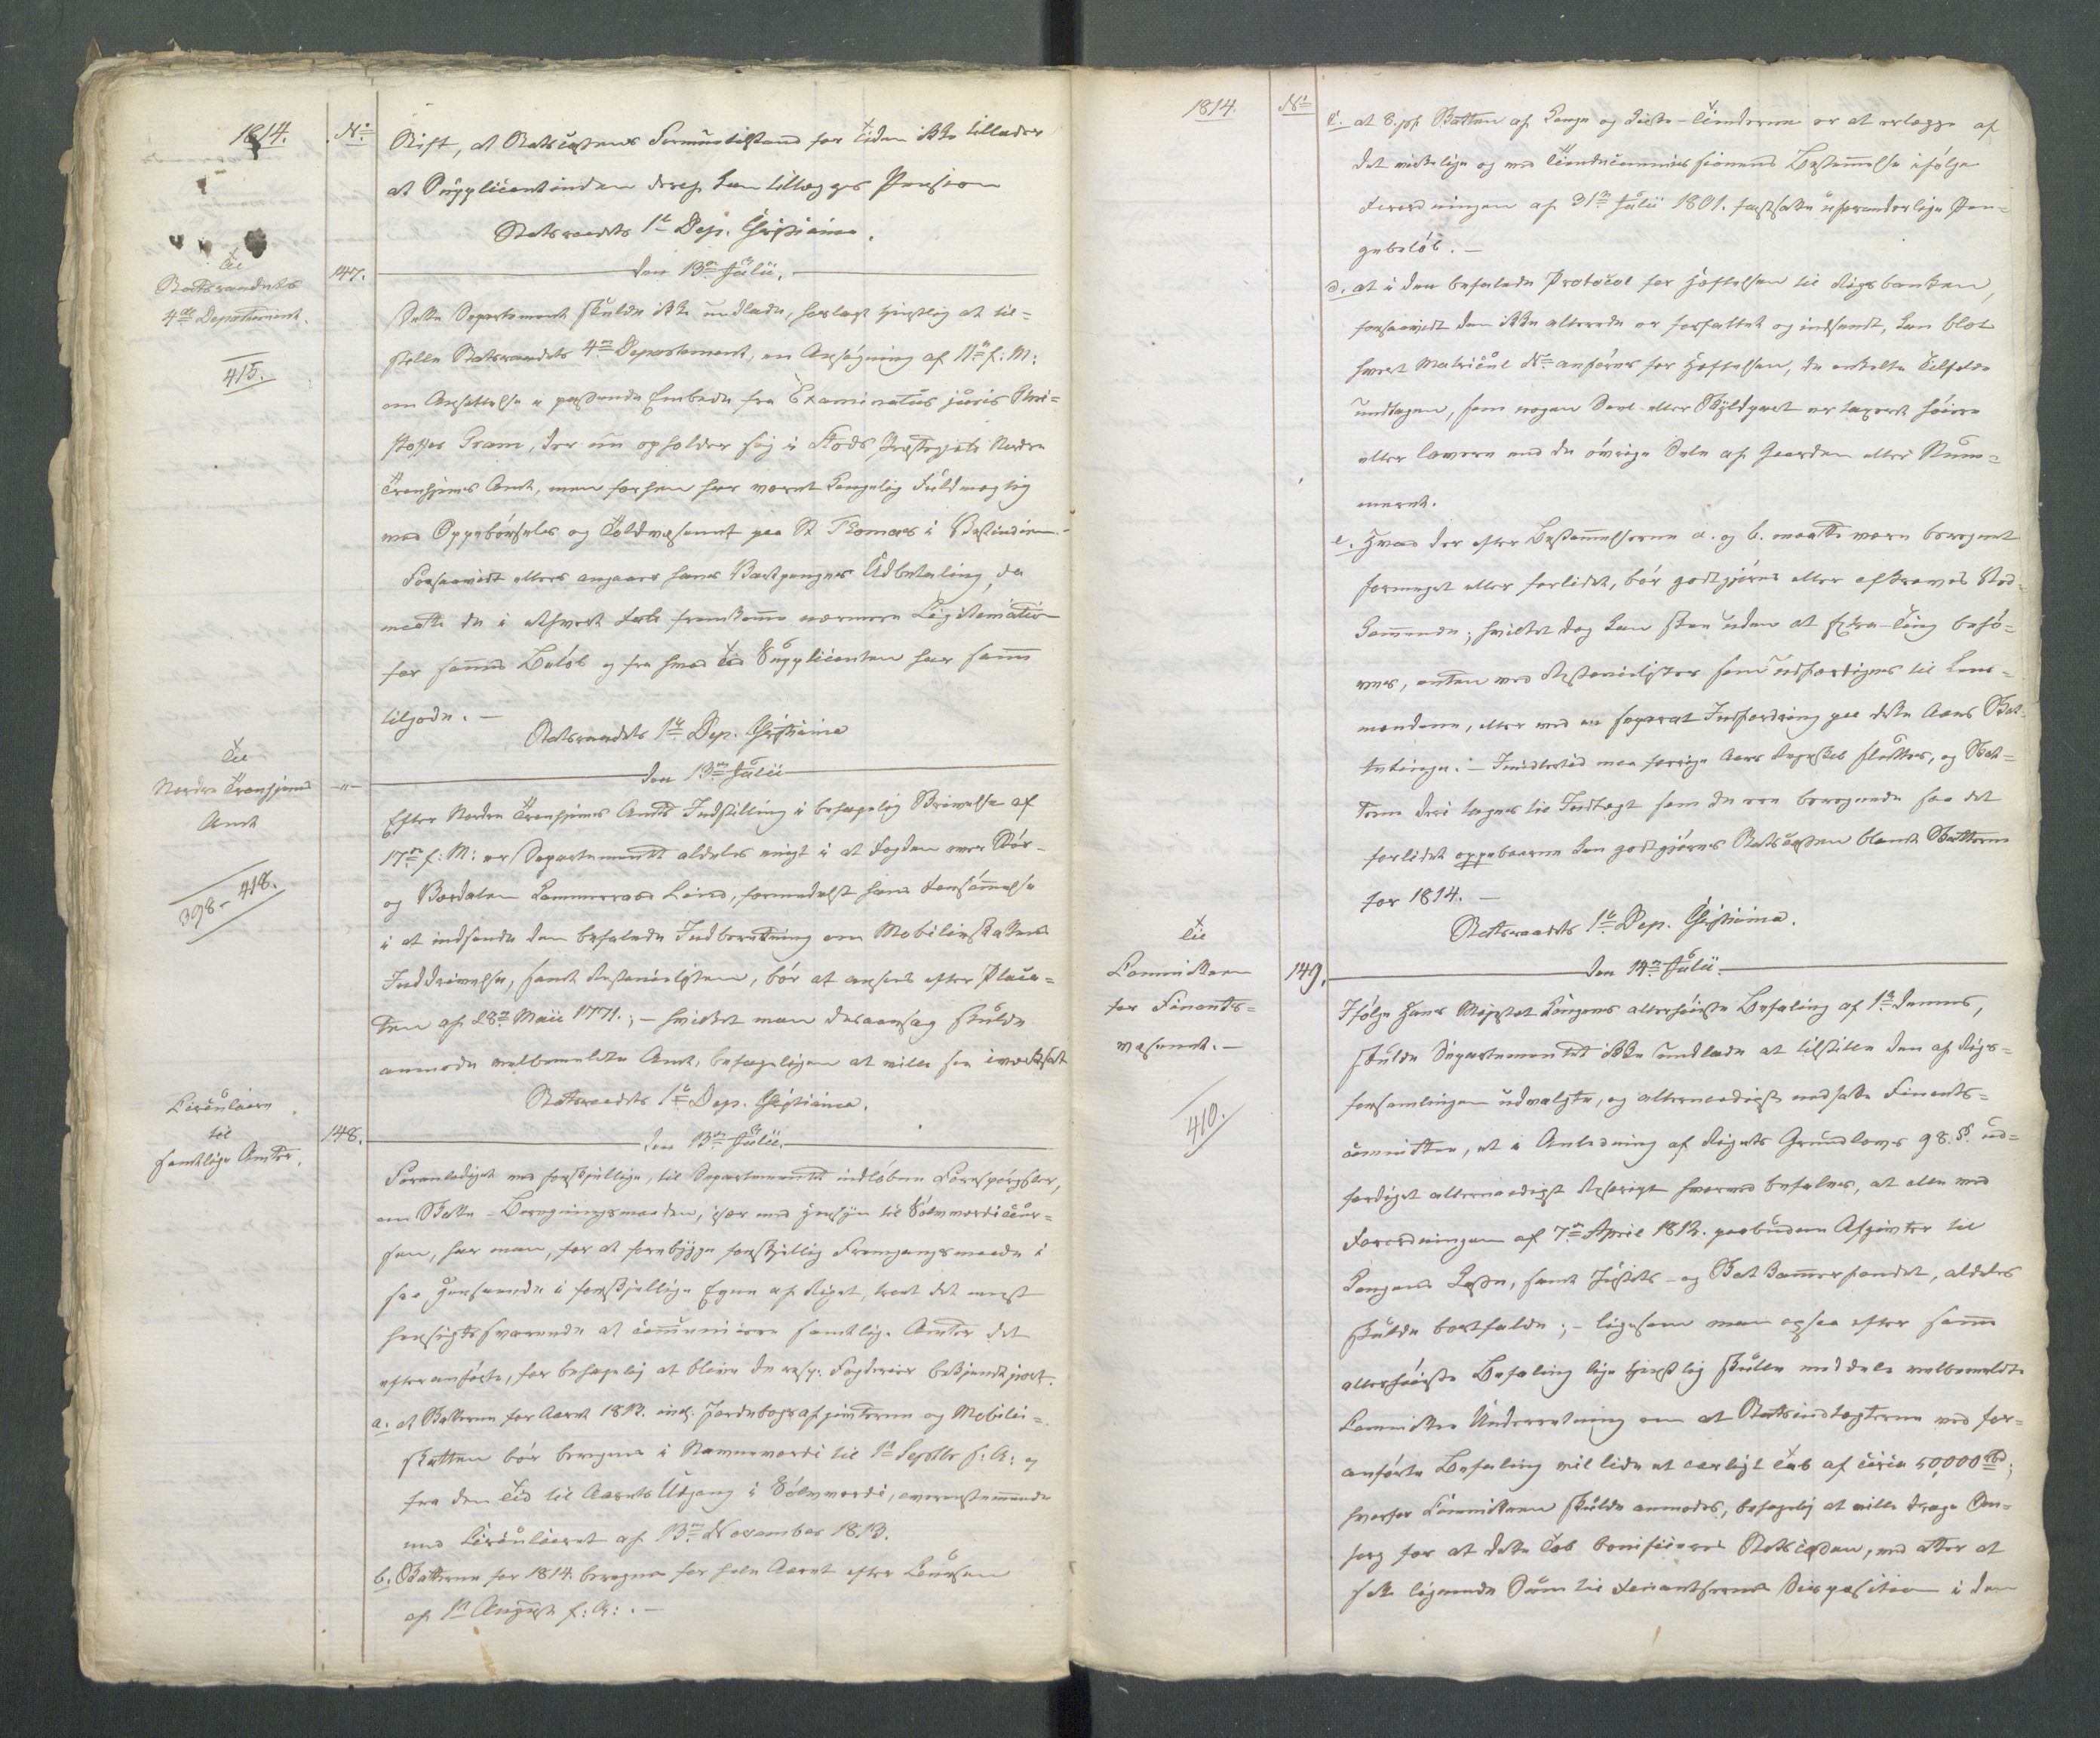 1814.
No
Stift, at Statscassens Formuetilstand for Tiden ikke tillader
at Supplicantinden deraf kan tillægges Pension
Statsraadets 1ste Dep. Christiania.
den 13de Julii.
Til
Statsraadets
4de Departement.
415.
147.
Dette Departement skulde ikke undlade, herlagt tienstlig at til=
stille Statsraadets 4de Departement, en Ansøgning af 11te f: M:
om Ansættelse i passende Embede fra Examinatus juris Chri=
stopher Gram, der nu opholder sig i Stods Præstegjeld Nordre
Tronhjems Amt, men forhen har været Kongelig Fuldmægtig
ved Oppebørseler og Toldvæsenet paa St Thomas i Vestindien.
Forsaavidt ellers angaaer hans Vartpenges Udbetaling, da
maatte de i ethvert fald fremkomme nærmere Legitimation
for sammes Beløb og fra hvad Tid Supplicanten har samme
tilgode. —
Statsraadets 1ste Dep. Christiania
den 13de Julii
Til
Nordre Tronhjems
Amt
398 - 418.
—"—
Efter Nordre Tronhjems Amts Indstilling i behagelig Skrivelse af
17de f: M: er Departementet aldeles enigt i at Fogden over Stør-
og Værdalen Kammerraad Lund, formedelst hans Forsømmelse
i at indsende den befalede Indberetning om Mobilieskattens
Inddrivelse, samt Restancelisten, bør at ansees efter Placa=
ten af 28de Maii 1771.; - hvilket man desaarsag skulde
anmode velbemeldte Amt, behageligen at ville see iværksat
Statsraadets 1ste Dep. Christiania.
den 13de Julii.
Circulaire
til
samtlige Amter.
148.
Foranlediget ved forskjellige, til Departementet indløbne Forespørgsler,
om Skatte-Beregningsmaaden, især med Hensyn til Sølvværdicour=
sen, har man, for at forebygge forskjellig Fremgangsmaade i
saa Henseende i forskjellige Egne af Riget, troet det meest
hensigtssvarende at communicere samtlige Amter det
efteranførte, for behagelig at blive de resp. Fogderier bekjendtgjort.
a. at Skatterne for Aaret 1813. incl. Jordebogsafgivterne og Mobilie=
skatten bør beregnes i Navneværdi til 1ste Septbr f: A: og
fra den Tid til Aarets Udgang i Sølvværdi, overeenstemmende
med Circulairet af 13de November 1813.
b. Skatterne for 1814. beregnes for hele Aaret efter Coursen
af 1ste August f: A: . —
1814.
No
c. at 8. pC. Skatten af Konge og Kirke-Tienderne er at erlægge af
det virkelige og ved Tiendecommissionens Bestemmelse ifølge
Forordningen af 31te Julii 1801. fastsatte uforanderlige Pen=
gebeløb. —
d. at i den befalede Protocol for Heftelsen til Rigsbanken,
forsaavidt den ikke allerede er forfattet og indsendt, kan blot
hvert Matricul No anføres for Heftelsen, de enkelte Tilfælde
undtagen, hvor nogen Deel eller Skyldpart er taxeret høiere
eller lavere end de øvrige Dele af Gaarden eller Num=
meret.
e. Hvad der efter Bestemmelserne a. og b. maatte være beregnet
formeget eller forlidet, bør godtgjøres eller afkræves Ved=
kommende; hvilket dog kan skee uden at Extra-Ting behø=
ves, enten ved Restancelister som udfærdiges til Lens=
mændene, eller ved en separat Indfordring paa dette Aars Skat=
tetinge. - Imidlertid maa forrige Aars Regnskab sluttes, og Skat=
terne deri tages til Indtægt som de ere beregnede saa det
forlidet oppebaarne kan godtgjøres Statscassen blandt Skatterne
for 1814. —
Statsraadets 1ste Dep. Christiania.
den 14de Julii.
Til
Committeen
for Finants=
væsenet. —
410.
149.
Ifølge Hans Majestæt Kongens allerhøieste Befaling af 1ste dennes,
skulde Departementet ikke undlade at tilstille den af Rigs=
forsamlingen udvalgte, og allernaadigst nedsatte Finants=
committee, et i Anledning af Rigets Grundlovs 98. §. ud=
færdiget allernaadigst Rescript hvorved befales, at alle ved
Forordningen af 7de April 1813. paabudne Afgivter til
Kongens Casse, samt Justits- og Skatkammerfondet, aldeles
skulde bortfalde; - ligesom man ogsaa efter samme
allerhøieste Befaling lige tienstlig skulle meddele velbemeldte
Committee Underretning om at Statsindtægterne ved for=
anførte Befaling vil lide et aarligt Tab af circa 50,000 rbd;
hvorfor Committeen skulde anmodes, behagelig at ville drage Om=
sorg for at dette Tab bonificeres Statscassen, ved atter at
sætte lignende Sum til Finantsernes Disposition i den